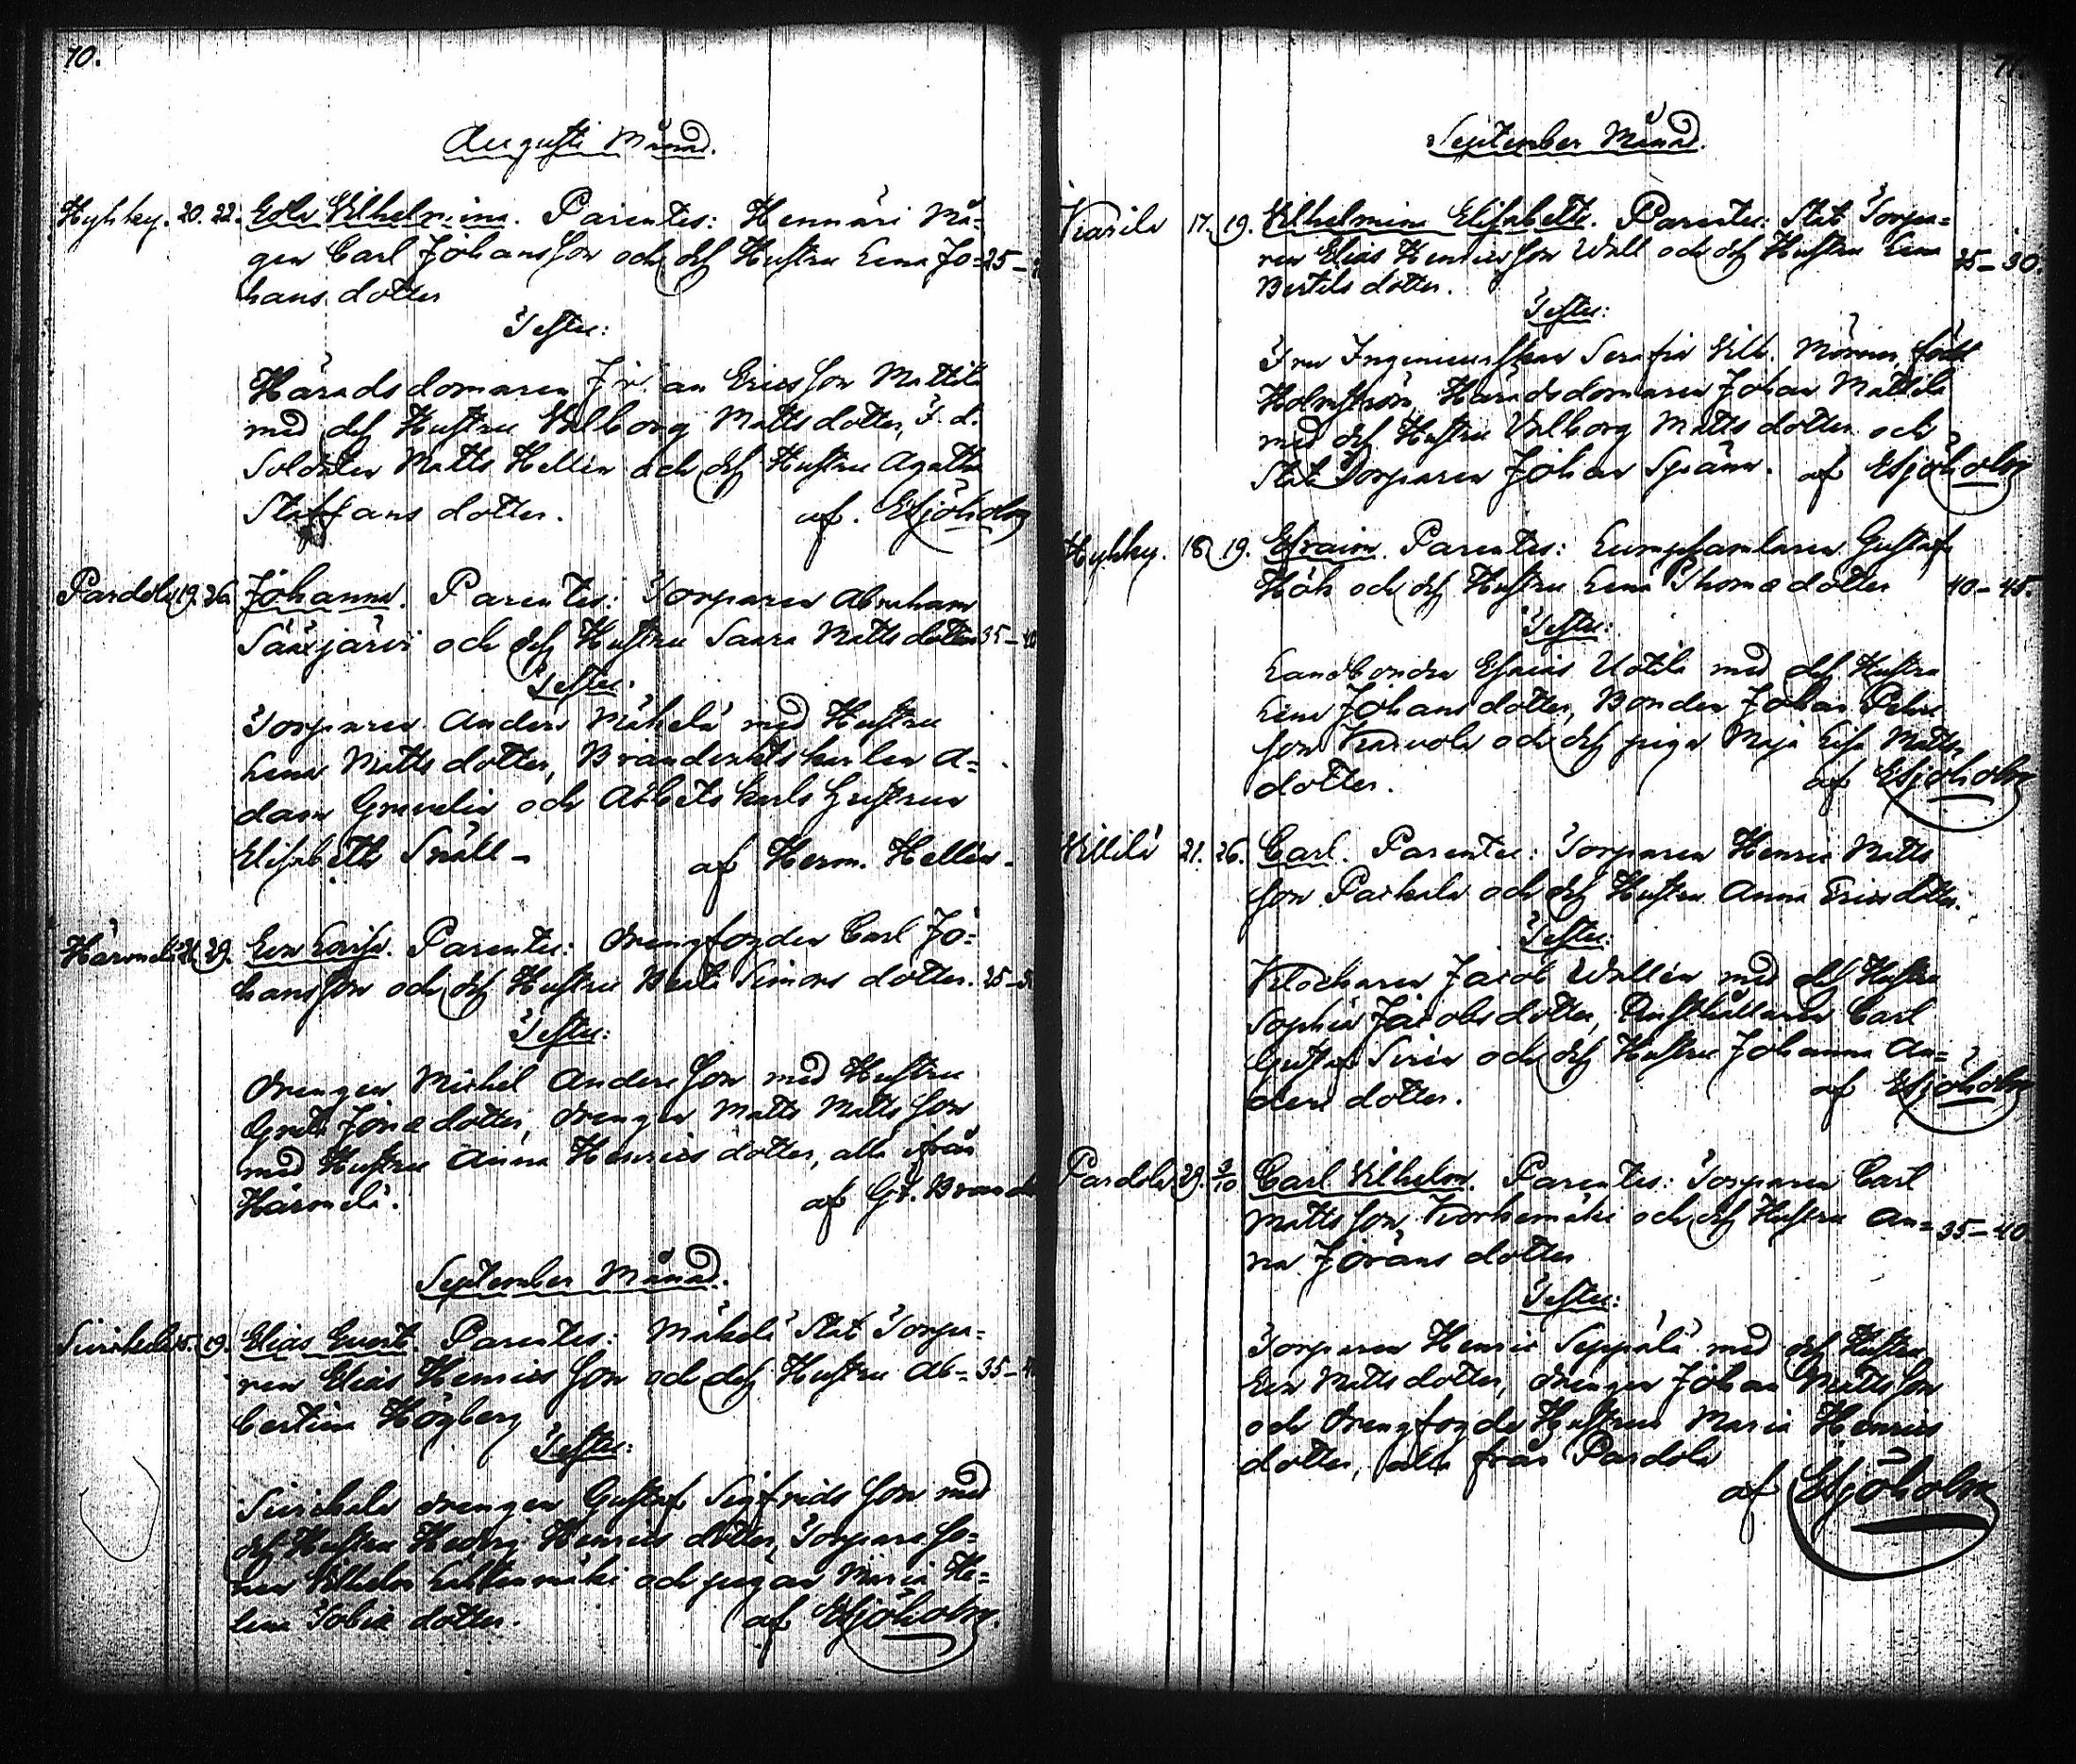 70.
Augusti Månad.
Hyhkey. 20. 22. Eda Vilhelmina. Parentes: Hennäri Må-
gen Carl Johansson och dess Hustru Lena Jo= 25 –
hans dotter
Testes:
Häradsdomaren Johan Ericsson Mattila
med dess Hustru Valborg Mattsdotter, F. d.
Soldaten Matts Hellén och dess Hustru Agatha
Staffans dotter. af. ESjöholm
Pardola 19. 26. Johanna. Parentes: Torparen Abraham
Sääxjärvi och dess Hustru Saara Mattsdotter 35 – 40
Testes.
Torparen Anders Mäkelä med Hustru
Lena Mattsdotter, Karlen A=
dam Grevelin och Arbetskarls Hustrun
Elisabeth Snäll – af Herm. Hellén.
Häromelä 29. Eva Lovisa. Parentes: Drengfogden Carl Jo=
hansson och dess Hustru Beata Simons dotter. 25 –
Testes:
Drengen Michel Andersson med Hustru
Greta Jonæ dotter, drengen Matts Mattsson
med Hustru Anna Henrics dotter, alla ifrån
Häromelä. af Gt. Brand
September Månad.
Suickala 15. 19. Elias Evert. Parentes: Mäkelä Stat Torpa-
ren Elias Henricsson och dess Hustru Al= 35 – 4
bertina Högberg
Testes:
Suickala drengen Gustaf Sigfridsson med
dess Hustru Hedvig Henrics dotter, Torpareso-
nen Vilhelm och pigan Maria He=
lena Tobiæ dotter. af ESjöholm.
71.
September Månad.
Karila 17. 19. Vilhelmina Elisabeth. Parentes: Stat Torpa=
ren Elias Henricsson Wall och dess Hustru Lena 25 – 30.
Bertils dotter.
Testes:
Fru Ingenieurskan Serafia Vilh. född
Holmström, Häradsdomaren Johan Mattila
med dess Hustru Valborg Matts dotter och
Stat Torparen Johan Spåra. af ESjöholm
Hyhkey. 18. 19. Efraim. Parentes: Lumpsamlaren Gustaf
Hök och dess Hustru Lena Thomæ dotter 40 – 45.
Testes:
Landbonden Esaias Uotila med dess Hustru
Lena Johans dotter, Bonden Johan Pehrs
son Karvola och dess piga Maja Lisa Matts
dotter. af ESjöholm
Villilä 21. 26. Carl. Parentes: Torparen Henric Matts
son Paikala och dess Hustru Anna Ericsdotter.
Testes:
Klockaren Jacob Wallén med dess Hustru
Sophia Jacobs dotter, Rusthållaren Carl
Gustaf Sirén och dess Hustru Johanna An=
ders dotter. af ESjöholm
Pardola 29. 3/10 Carl Vilhelm. Parentes: Torparen Carl
Mattsson Korkemäki och dess Hustru An= 35 – 40
na Jörans dotter
Testes:
Torparen Henric Seppälä med dess Hustru
Eva Matts dotter, drengen Johan Mattsson
och Drengfogde Hustrun Maria Henrics
dotter, alla från Pardola
af ESjöholm